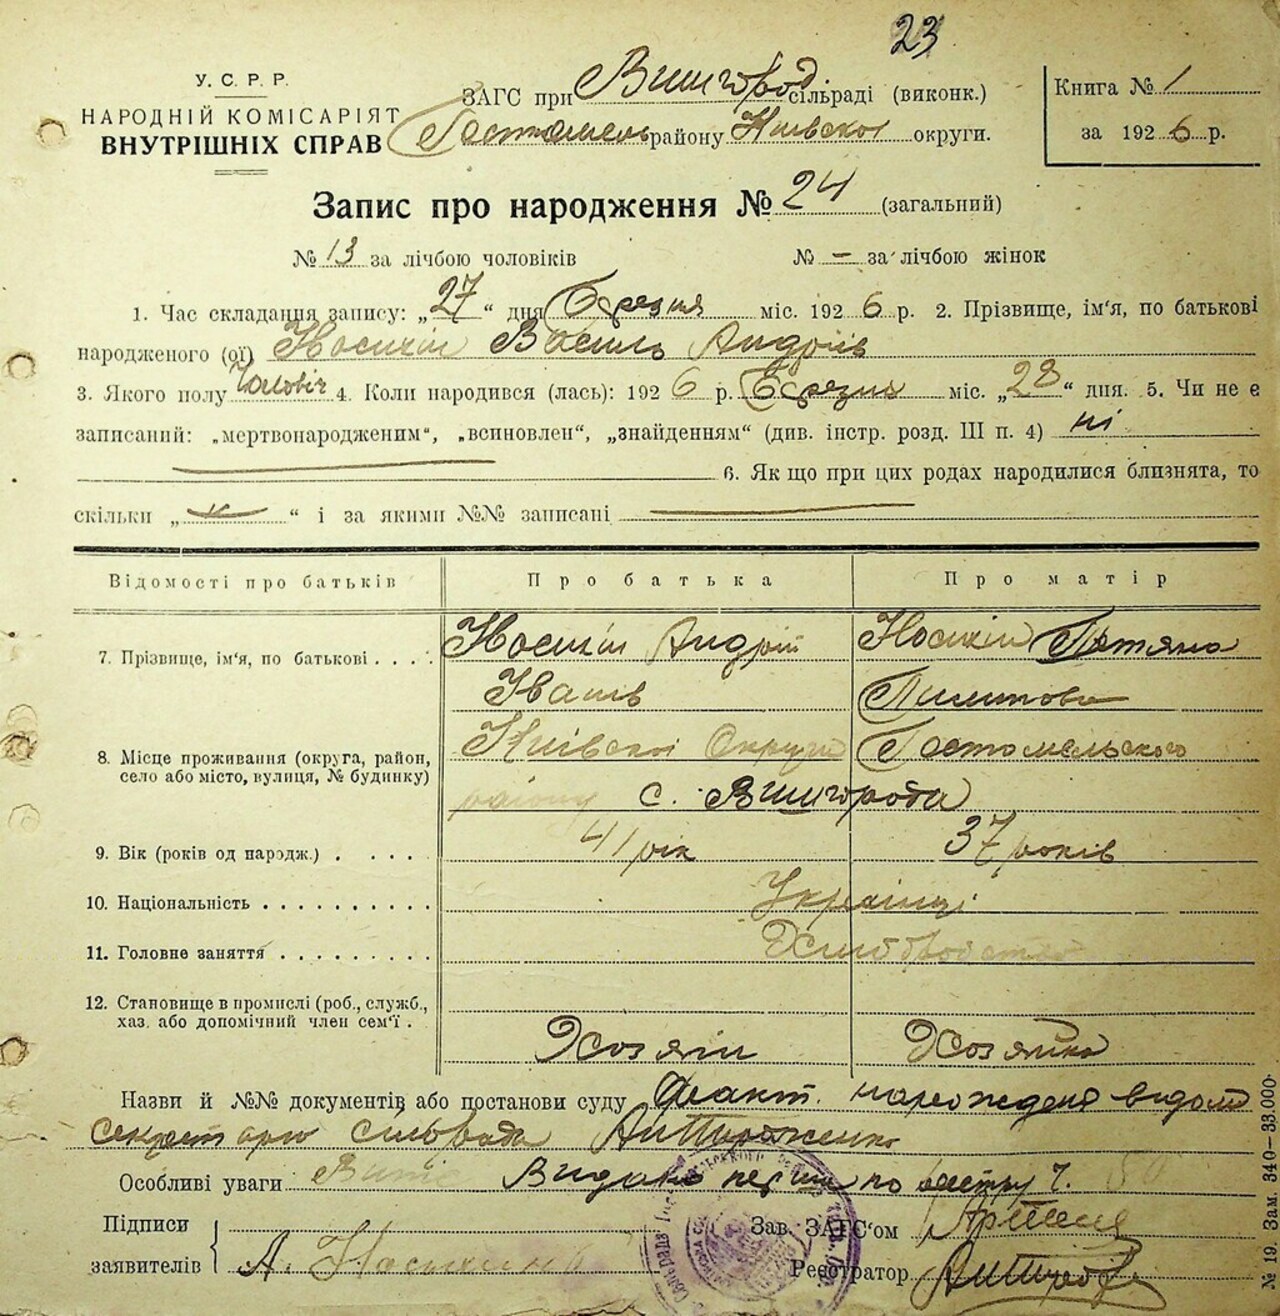 23
У. С. Р. Р.
НАРОДНІЙ КОМІСАРІЯТ
ВНУТРІШНІХ СПРАВ
ЗАГС при Вишгород сільраді (виконк.)
Гостомель району Київської округи.
Книга № 1
за 1926 р.
Запис про народження № 24 (загальний)
№ 13 за лічбою чоловіків № – за лічбою жінок
1. Час складання запису: „27“ дня Березня міс. 1926 р. 2. Прізвище, ім'я, по батькові
народженого (ої) Носикій Василь Андріїв
3. Якого полу Чоловіч 4. Коли народився (лась): 1926 р. Березня міс. „28“ дня. 5. Чи не є
записаний: „мертвонародженим“, „всиновлен“, „знайденням“ (див. інстр. розд. III п. 4) ні
6. Як що при цих родах народилися близнята, то
скільки „ “ і за якими №№ записані
Відомості про батьків Про батька Про матір
7. Прізвище, ім'я, по батькові . . . . Носикій Андрій Носикій Тетяна
Іванів Пилипова
8. Місце проживання (округа, район, село або місто, вулиця, № будинку) Київскої Округи Гостомельского
району с. Вишгорода
9. Вік (років од народж.) . . . . 41 рік 37 років
10. Національність . . . . . . . . . . Українці
11. Головне заняття . . . . . . . . .
12. Становище в промислі (роб., служб., хаз. або допомічний член сем'ї .
Хозяїн Хозяйка
Назви й №№ документів або постанови суду Факт. народженя відомі
секретарю сільрада
Особливі уваги Видано перш по реєстру ч. 50
Підписи
заявителів А. Носикій
Зав. ЗАГС'ом
Реєстратор
№ 19. Зам. 340—33.000